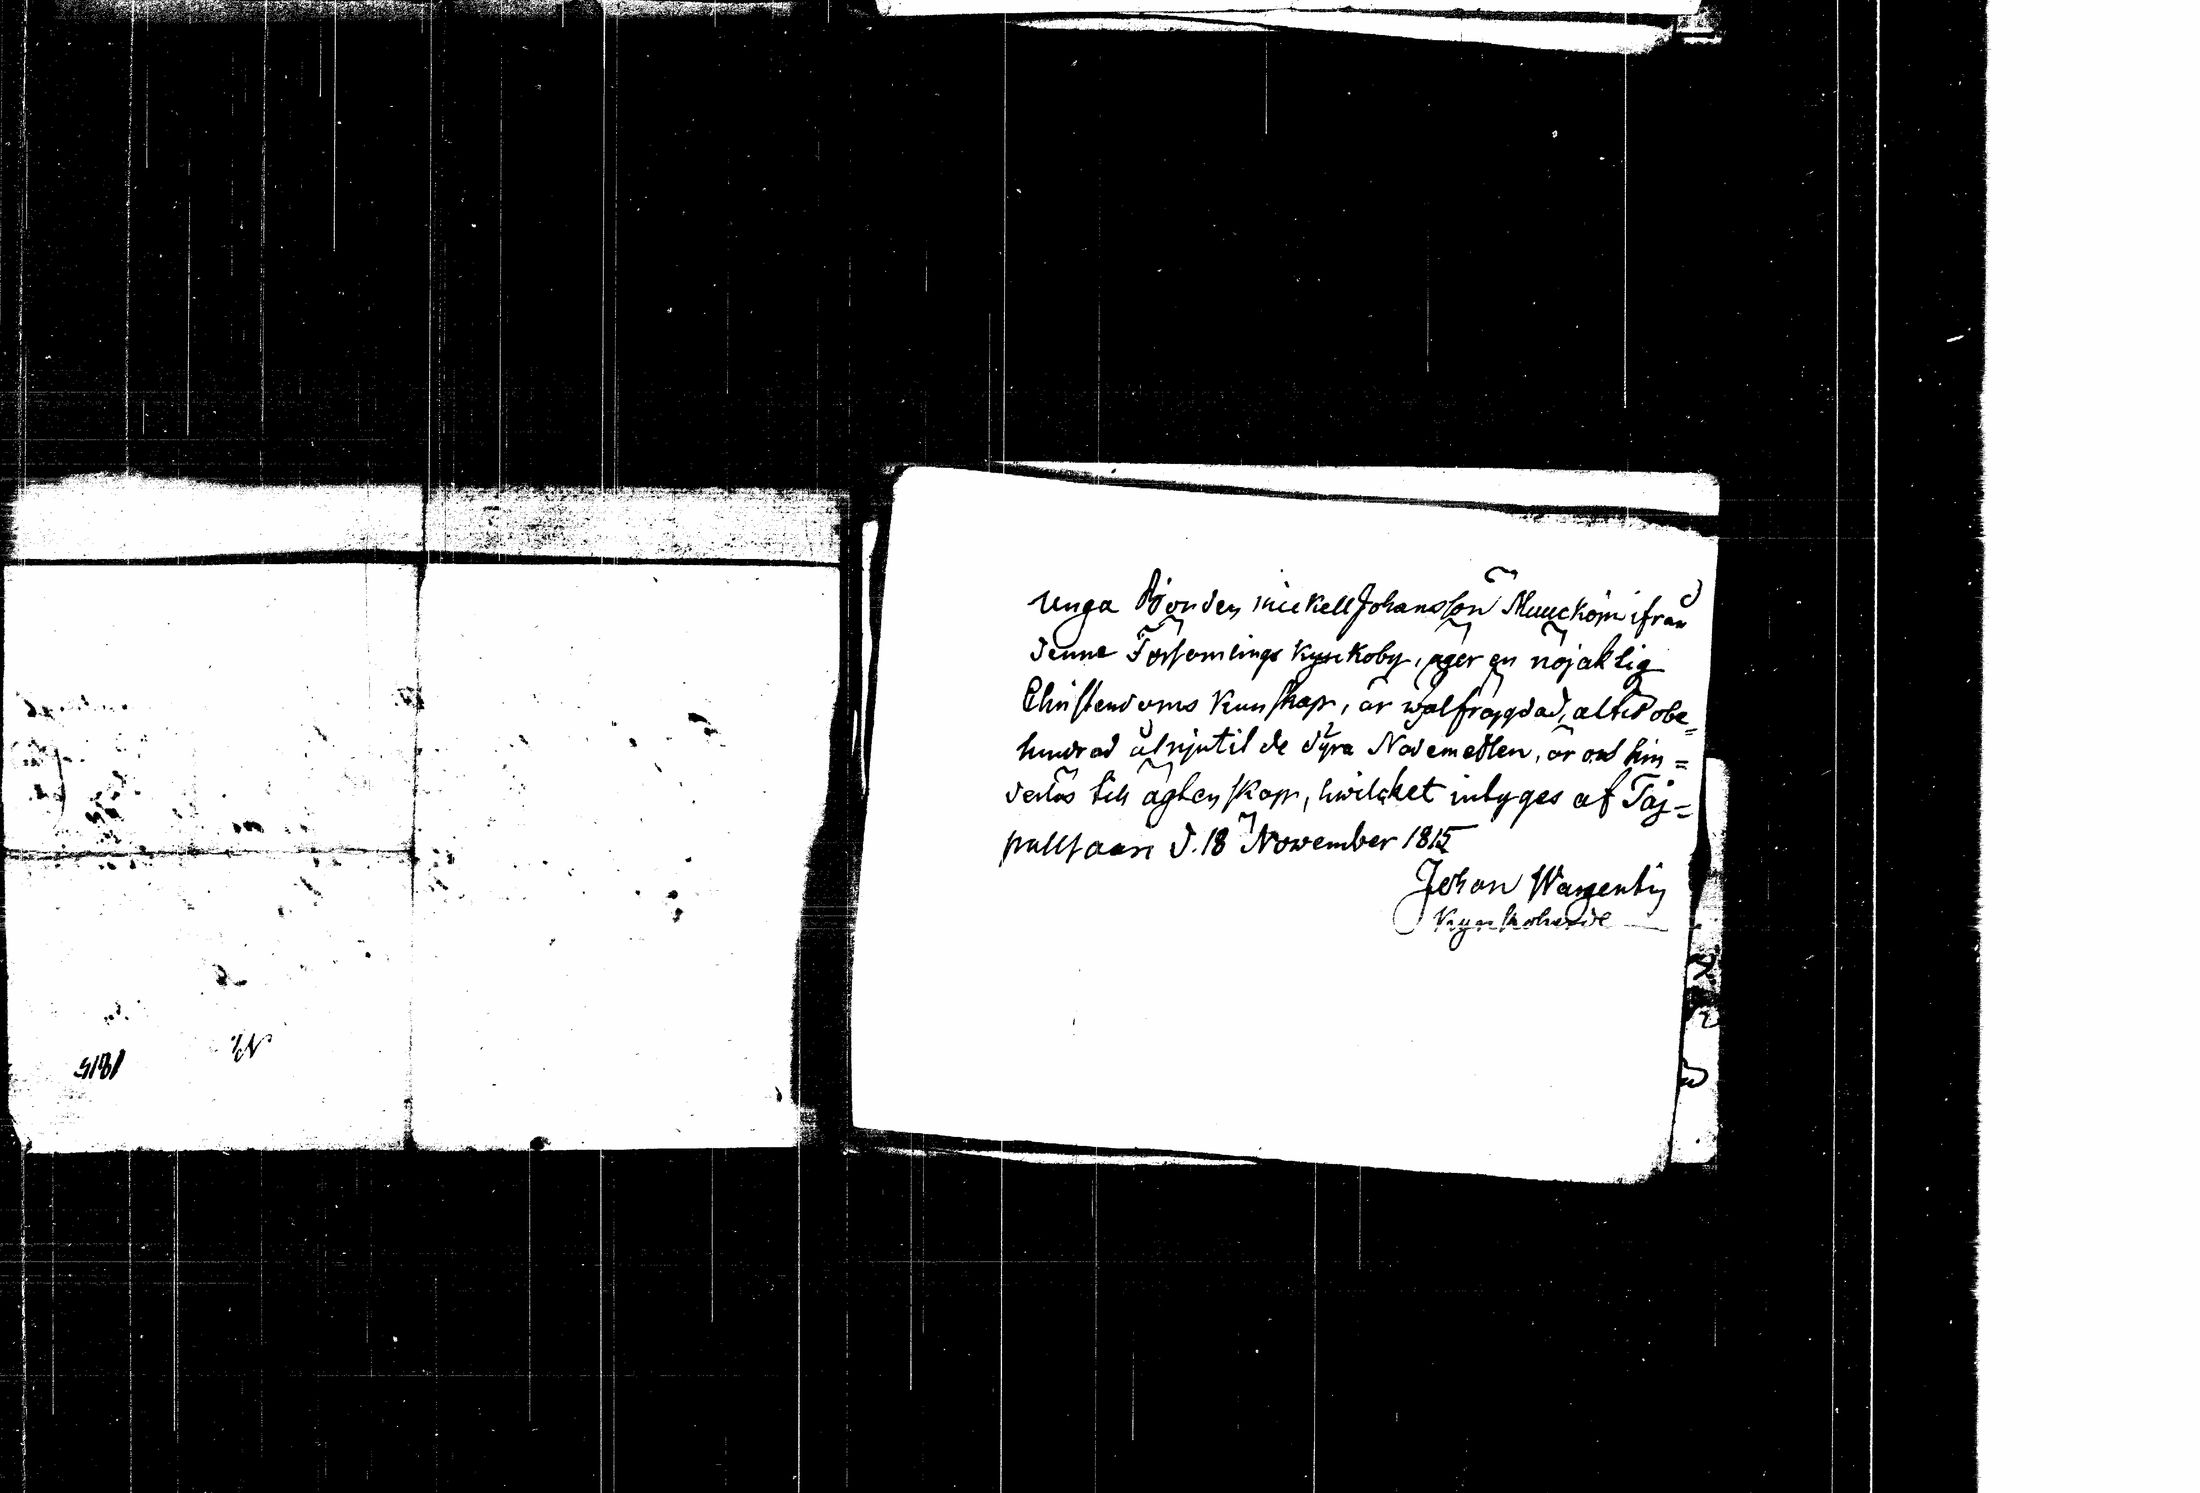 Unga Bonden Mickell Johansson Muuckoin ifrån
denne Församlings Kyrkoby, äger en nöjaktig
Christendoms Kunskap, är wälfrägdad, altid obe=
hindrad åtnjutit de dyra Nådemedlen, är ock hin=
derlös till ägtenskap, hwilcket intyges af Taj=
pallsaari d. 18 November 1815
Johan Wargentin
Kyrkoherde
N.
1815